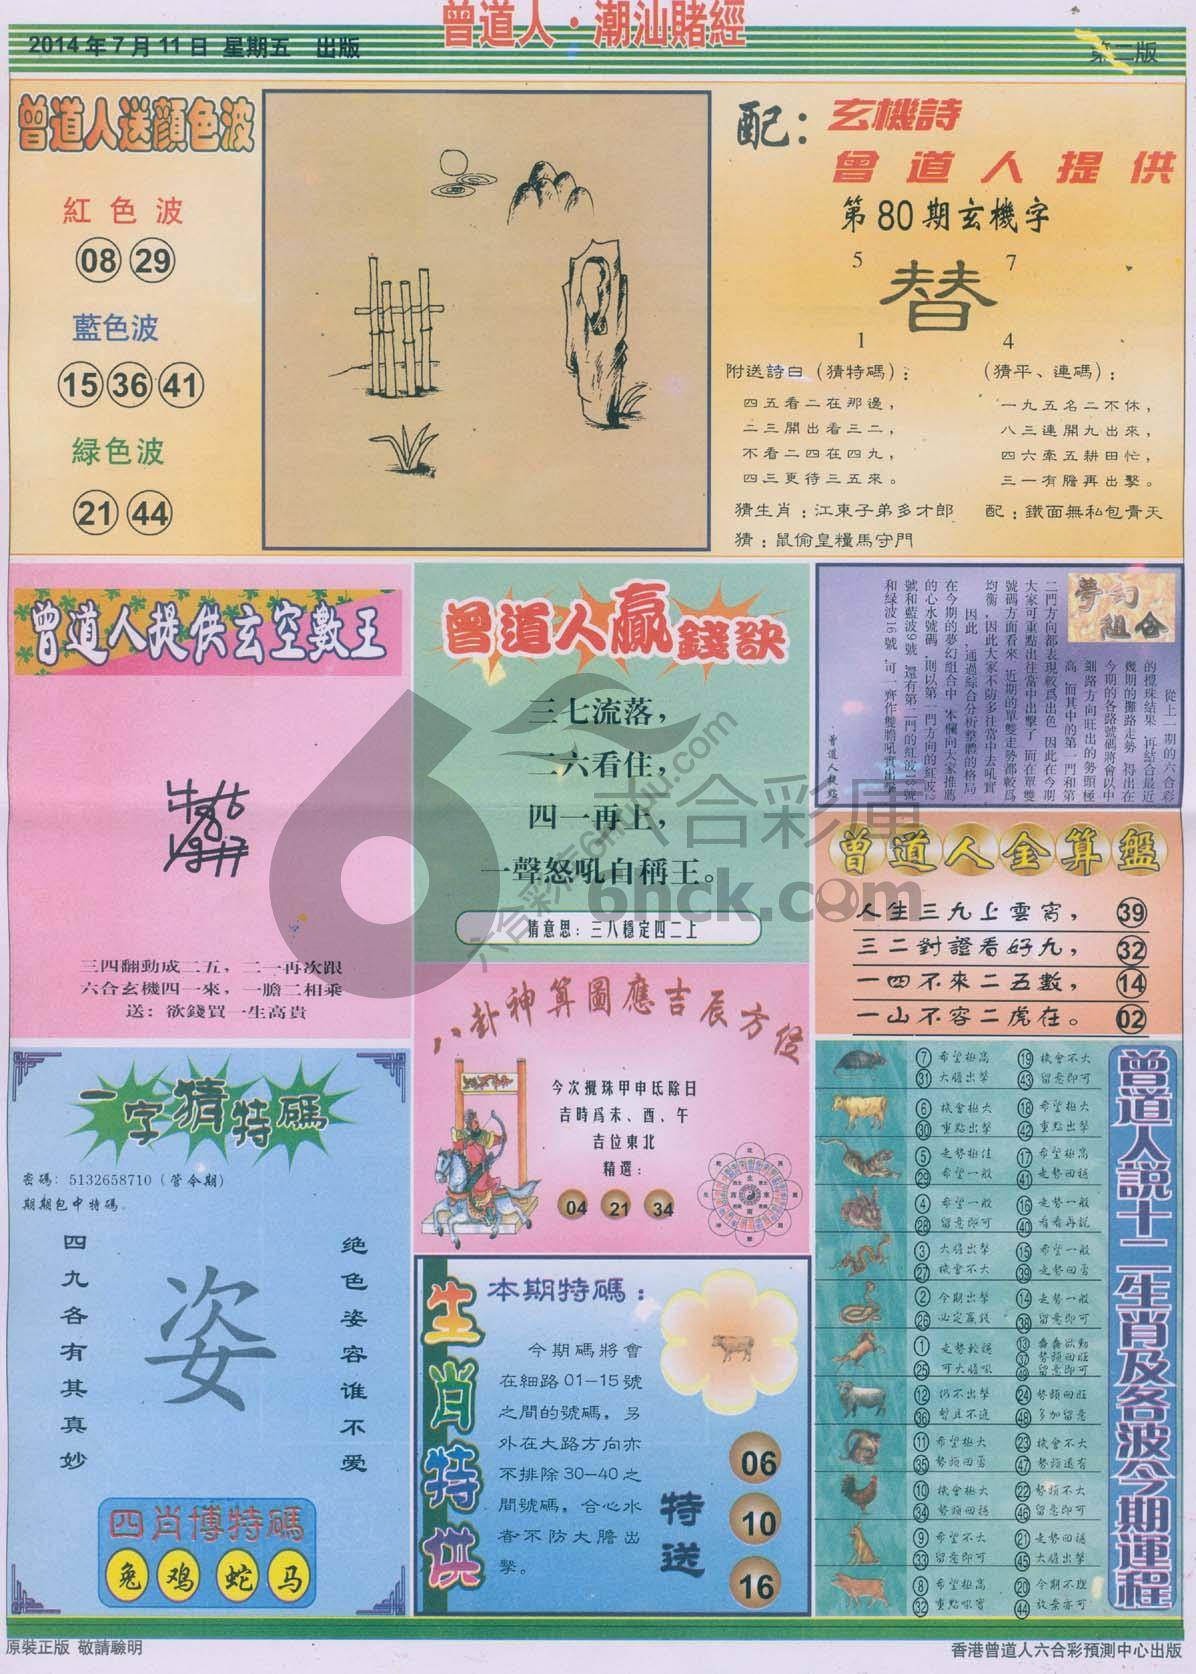 2014年7月11日 星期五 出版
曾道人·潮汕賭經
第二版
曾道人送顔色波
紅色波
08 29
藍色波
15 36 41
緑色波
21 44
配：玄機詩
曾道人提供
第80期玄機字
5 7
替
1 4
附送詩白（猜特碼）：
四五看二在那邊，
二三開出看三二，
不看二四在四九，
四三更待三五來。
（猜平、連碼）：
一九五名二不休，
八三連開九出來，
四六牽五耕田忙，
三一有膽再出擊。
猜生肖：江東子弟多才郎 配：鐵面無私包青天
猜：鼠偷皇糧馬守門
曾道人提供玄空數王
三四翻動成二五，二一再次跟
六合玄機四一來，一膽二相乘
送：欲錢買一生高貴
曾道人贏錢訣
三七流落，
二六看住，
四一再上，
一聲怒吼自稱王。
猜意思：三八穩定四二上
夢幻組合
從上一期的六合彩
的攪珠結果，再結合最近
幾期的攤路走勢，得出在
今期的各路號碼將會以中
細路方向旺出的勢頭極
高，而其中的第一門和第
二門方向都表現較爲出色，因此在今期
大家可重點出往當中出擊了，而在單雙
號碼方面看來，近期的單雙走勢都較爲
均衡，因此大家不防多注當中去吼實
因此，通過綜合分析整體的格局
在今期的夢幻組合中，本欄向大家推薦
的心水號碼，則以第一門方向的紅波2
號和藍波9號，還有第二門的紅波18號
和绿波16號，可一齊作雙膽吼實出擊
曾道人提點
六合彩庫
6hck.com
曾道人金算盤
人生三九上雲宵， 39
三二對證看好九， 32
一四不來二五數， 14
一山不容二虎在。 02
八卦神算圖應吉辰方位
今次攪珠甲申氐除日
吉時爲未、酉、午
吉位東北
精選：
04 21 34
一字猜特碼
密碼：5132658710（管令期）
期期包中特碼。
四九各有其真妙
姿
绝色姿容谁不爱
四肖博特碼
兔 鸡 蛇 马
生肖特供
本期特碼：
今期碼將會
在細路01—15號
之間的號碼，另
外在大路方向亦
不排除30—40之
間號碼，合心水
者不防大膽出
擊。
特送
06
10
16
曾道人說十二生肖及各波今期運程
7 希望極高 19 機會不大
31 大膽出擊 43 留意即可
6 機會極大 18 希望極大
30 重點出擊 42 重點出擊
5 走勢極佳 17 希望極高
29 希望一般 41 走勢回穩
4 希望一般 16 走勢一般
28 留意即可 40 看看再説
3 大膽出擊 15 希望一般
27 機會不大 39 走勢回勇
2 今期出擊 14 走勢一般
26 必定贏錢 38 留意即可
1 走勢較穩 13 蠢蠢欲動
37 勢頭回旺
25 可大膽吼 49 留意即可
12 仍不出擊 24 勢頭回旺
36 暫且不追 48 多加留意
11 希望極大 23 機會不大
35 勢頭回勇 47 勢頭還有
10 機會極大 22 勢頭不大
34 勢頭回穩 46 留意即可
9 希望不大 21 走勢回穩
33 留意即可 45 大膽出擊
8 希望極高 20 今期不理
32 重點吼實 44 放棄亦可
原裝正版 敬請驗明
香港曾道人六合彩預測中心出版